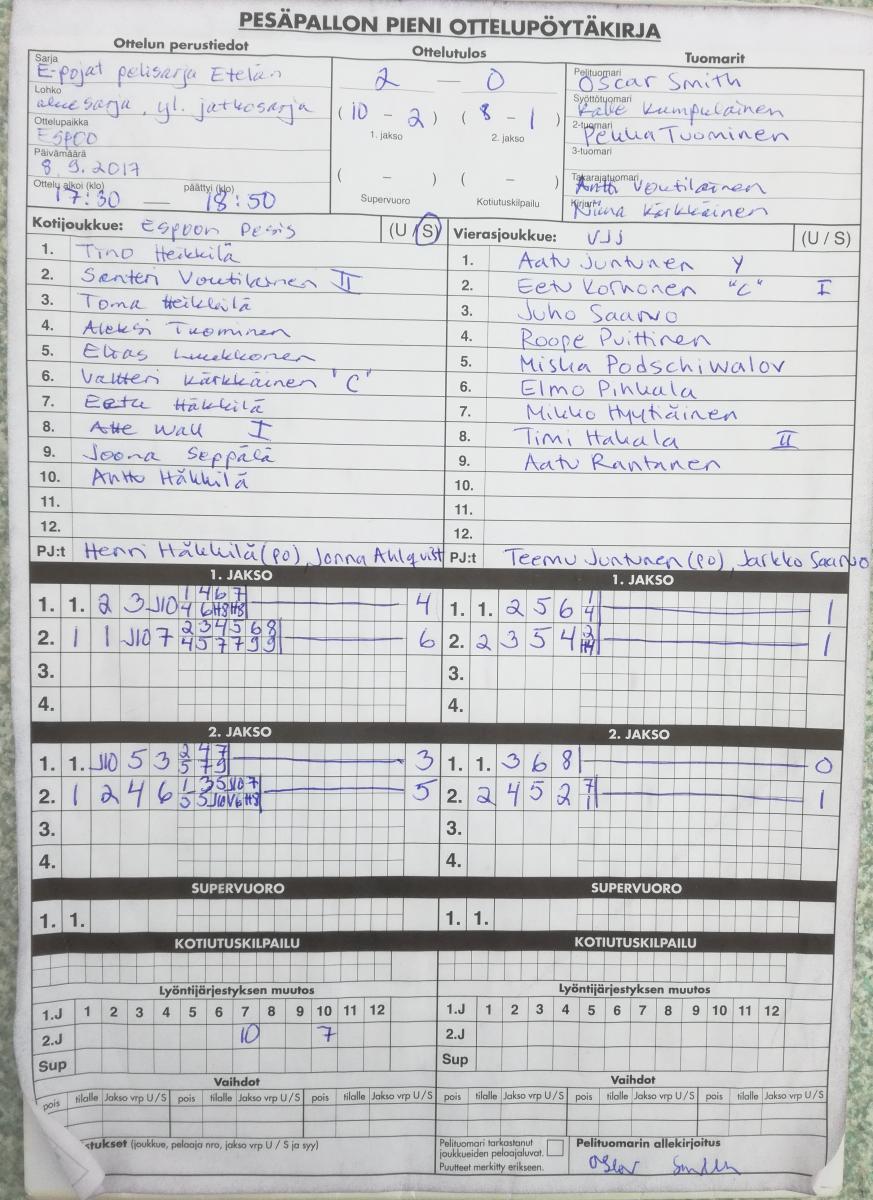 PESÄPALLON PIENI OTTELUPÖYTÄKIRJA
Ottelun perustiedot
Sarja
E-pojat pelisarja Etelän
Lohko
aluesarja, yl. jatkosarja
Ottelupaikka
Espoo
Päivämäärä
8.9.2017
Ottelu alkoi (klo) päättyi (klo)
17:30 — 18:50
Ottelutulos
2 — 0
(10 - 2) (8 - 1)
1. jakso 2. jakso
( - ) ( - )
Supervuoro Kotiutuskilpailu
Tuomarit
Pelituomari
Oscar Smith
Syöttötuomari
Kalle Kumpulainen
2-tuomari
Pekka Tuominen
3-tuomari
Takarajatuomari
Antti Voutilainen
Kirjuri
Niina Kärkkäinen
Kotijoukkue: Espoon Pesis (U / S)
1. Tino Heikkilä
2. Santeri Voutilainen II
3. Toma Heikkilä
4. Aleksi Tuominen
5. Elias Luukkonen
6. Valtteri Kärkkäinen "C"
7. Eetu Häkkilä
8. Atte Wall I
9. Joona Seppälä
10. Antto Häkkilä
11.
12.
PJ:t Henri Häkkilä (PO), Jonna Ahlquist
Vierasjoukkue: VJJ (U / S)
1. Aatu Juntunen Y
2. Eetu Korhonen "C" I
3. Juho Saarvo
4. Roope Puittinen
5. Miska Podschiwalov
6. Elmo Pihkala
7. Mikko Hyytiäinen
8. Timi Hakala II
9. Aatu Rantanen
10.
11.
12.
PJ:t Teemu Juntunen (PO), Jarkko Saarvo
1. JAKSO
1. 1. 2 3 J10 1 4 6 7 4
4 6 H8 H8
2. 1 1 J10 7 2 3 4 5 6 8 6
4 5 7 7 9 9
3.
4.
1. JAKSO
1. 1. 2 5 6 1 1
4
2. 2 3 5 4 2 1
H4
3.
4.
2. JAKSO
1. 1. J10 5 3 2 4 7 3
5 7 9
2. 1 2 4 6 1 3 5 J10 7 5
3 5 J10 V6 H8
3.
4.
2. JAKSO
1. 1. 3 6 8 0
2. 2 4 5 2 7 1
1
3.
4.
SUPERVUORO
1. 1.
SUPERVUORO
1. 1.
KOTIUTUSKILPAILU
KOTIUTUSKILPAILU
Lyöntijärjestyksen muutos
1.J 1 2 3 4 5 6 7 8 9 10 11 12
2.J 10 7
Sup
Lyöntijärjestyksen muutos
1.J 1 2 3 4 5 6 7 8 9 10 11 12
2.J
Sup
Vaihdot
pois tilalle Jakso vrp U/S pois tilalle Jakso vrp U/S pois tilalle Jakso vrp U/S
Vaihdot
pois tilalle Jakso vrp U/S pois tilalle Jakso vrp U/S pois tilalle Jakso vrp U/S
tukset (joukkue, pelaaja nro, jakso vrp U / S ja syy)
Pelituomari tarkastanut
joukkueiden pelaajaluvat.
Puutteet merkitty erikseen.
Pelituomarin allekirjoitus
Oscar Smith